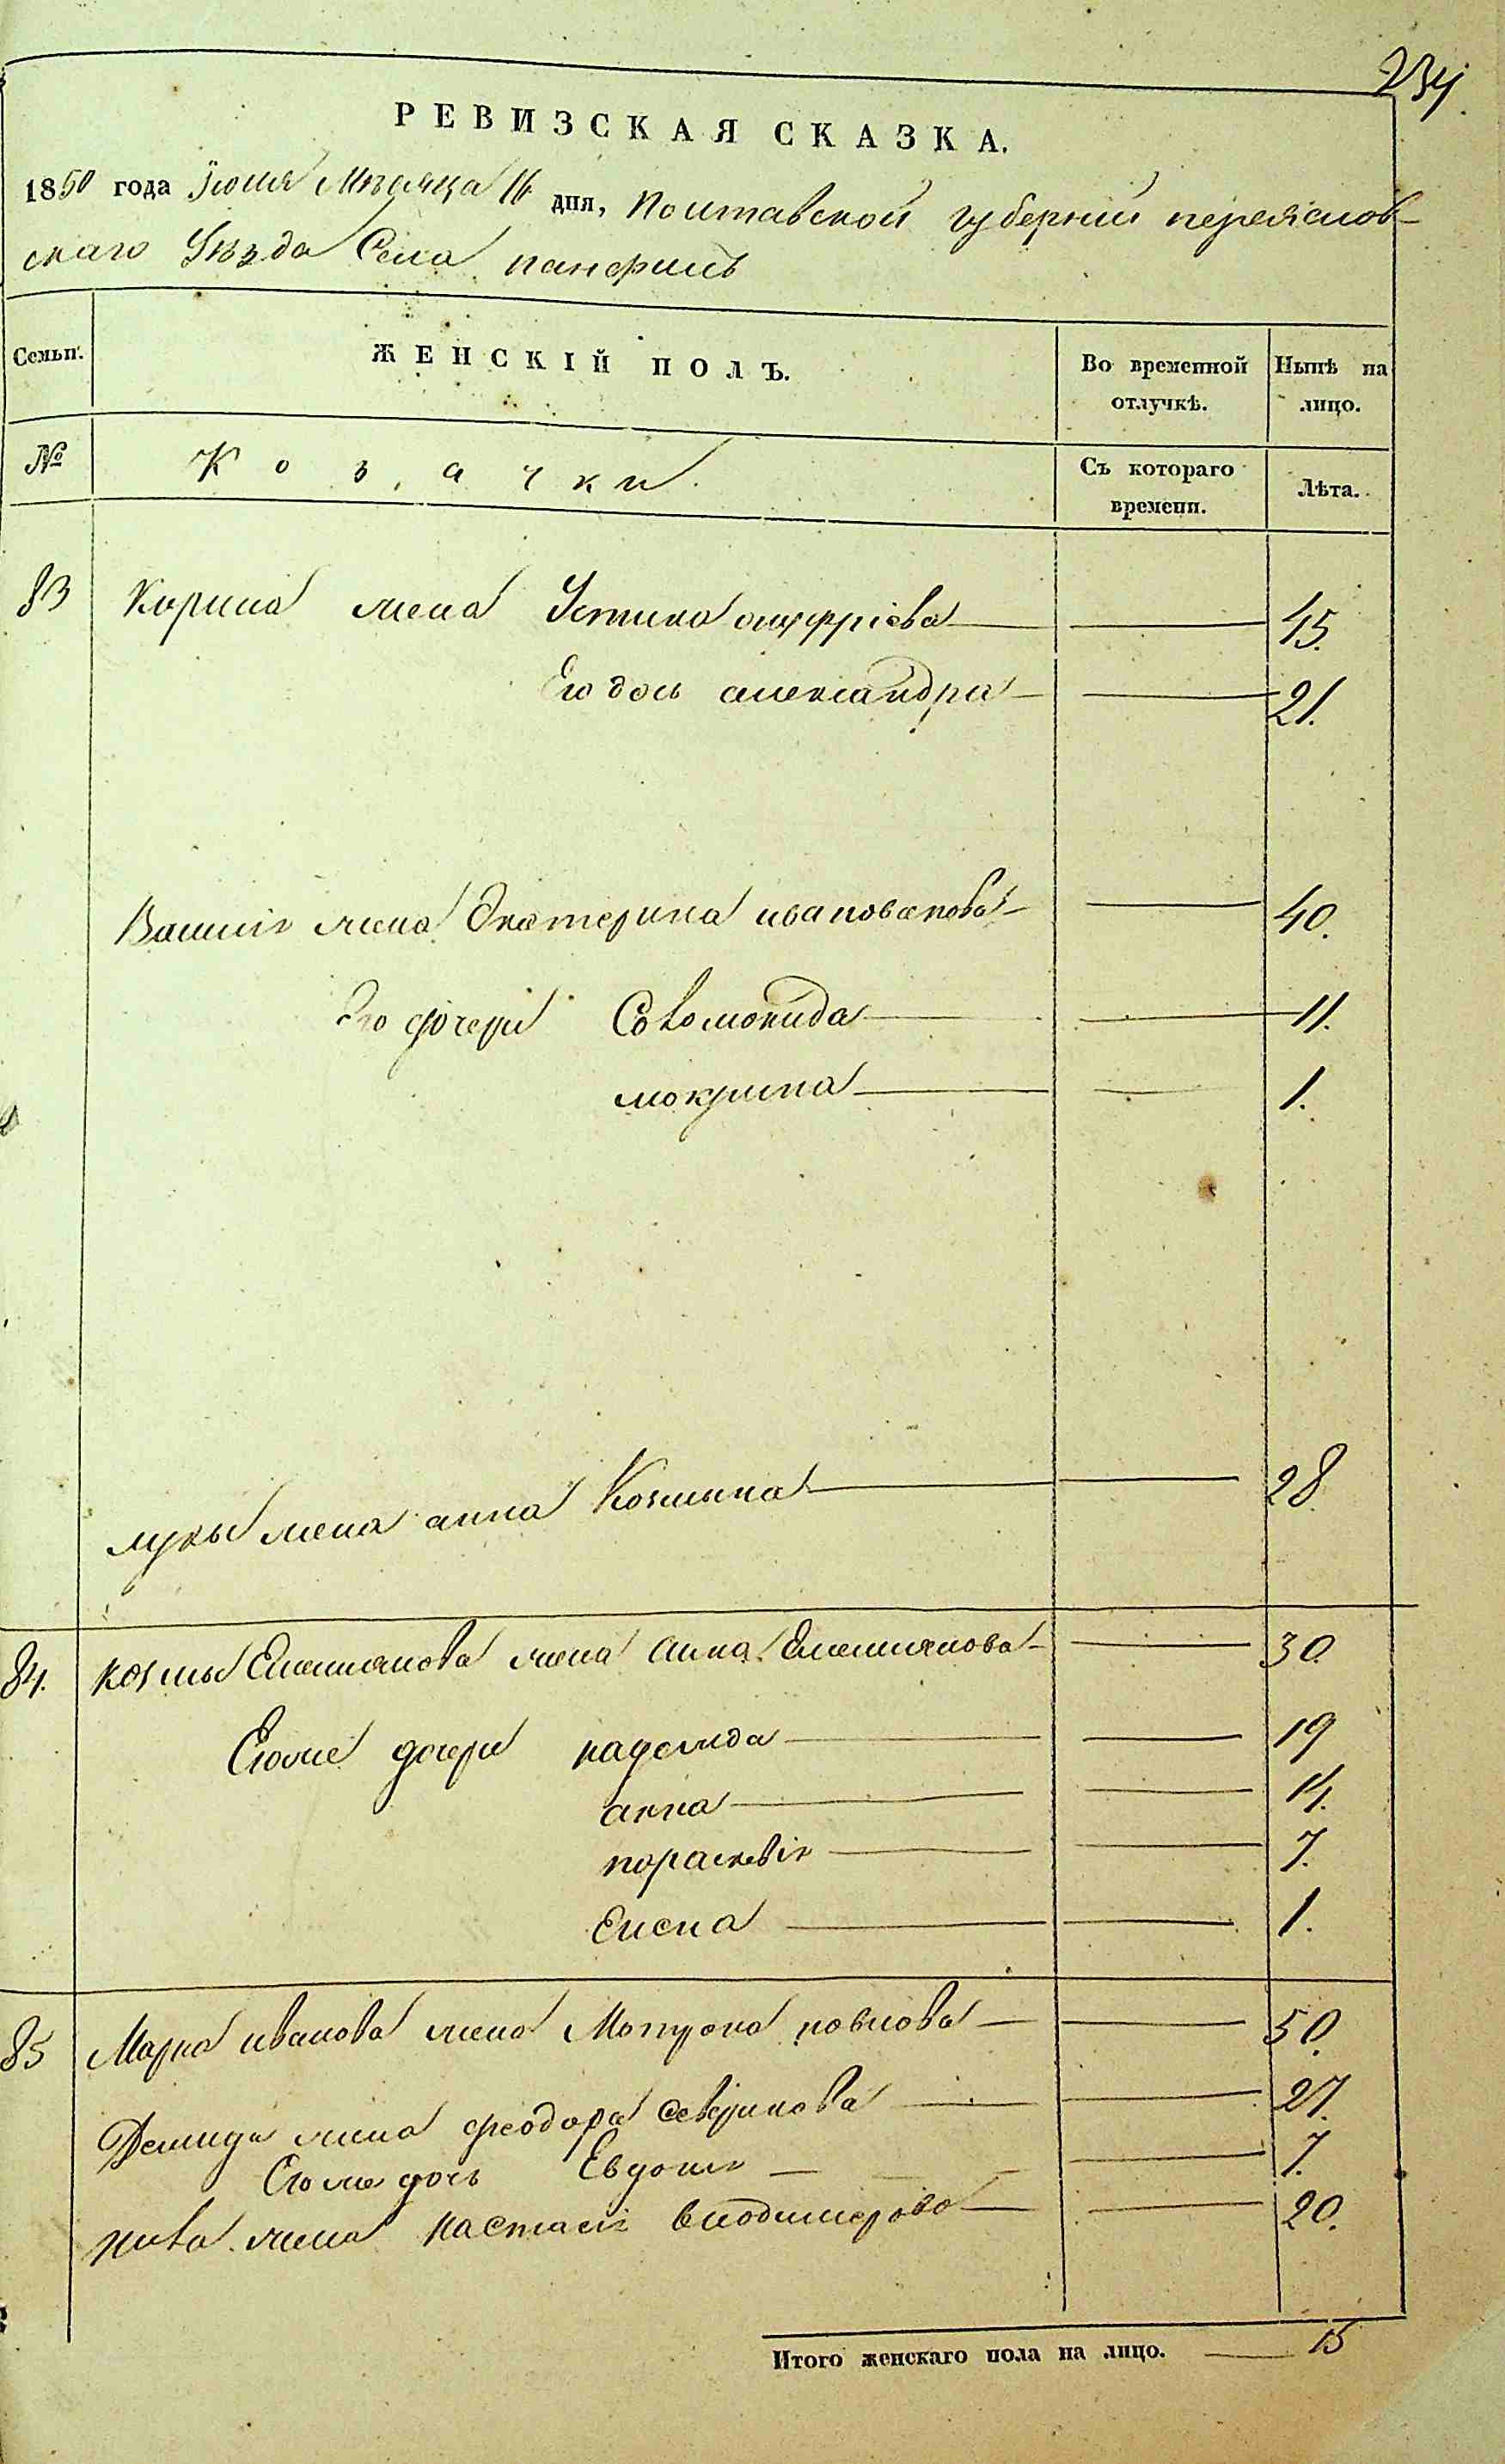 234
РЕВИЗСКАЯ СКАЗКА.
1850 года Июня Мѣсяца 16 дня, Полтавской губерніи переяслов-
скаго Уѣзда Села панфилъ
Семьи. ЖЕНСКІЙ ПОЛЪ. Во временной отлучкѣ. Нынѣ на лицо.
№ Козачки Съ котораго времени. Лѣта.
83 Кирила жена Устина онуфріева 45.
Его дочь александра 21.
Василія жена Екатерина ивановна 40.
Его дочери Соломонида 11.
мокрина 1.
луки жена анна Козмина 28
84. козмы Емельянова жена Анна Емельянова 30
Егоже дочери надежда 19
анна 14.
порасковія 7.
Елена 1.
85 Марка иванова жена Мотрона павлова 50.
Демида жена феодора Северинова 27.
Егоже дочь Евдокия 7.
жена настасія владимерова 20.
Итого женскаго пола на лицо. 15